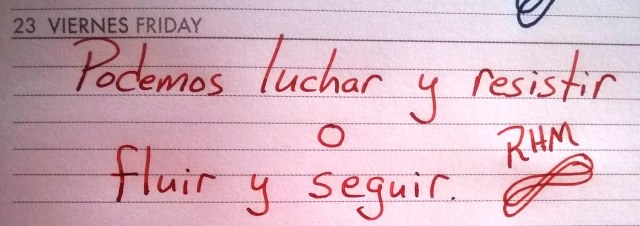 23 VIERNES FRIDAY
Podemos luchar y resistir
o
fluir y seguir.
RHM